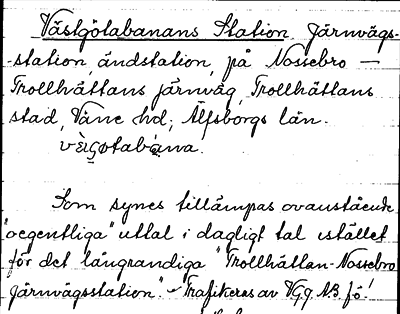 Västgötabanans Station Järnvägs-
-station, ändstation, på Nossebro —
Trollhättans järnväg, Trollhättans
stad, Väne hd; Älfsborgs län.
Som synes tillämpas ovanstående
"oegentliga" uttal i dagligt tal istället
för det långrandiga "Trollhättan-Nossebro
Järnvägsstation". - Trafikeras av